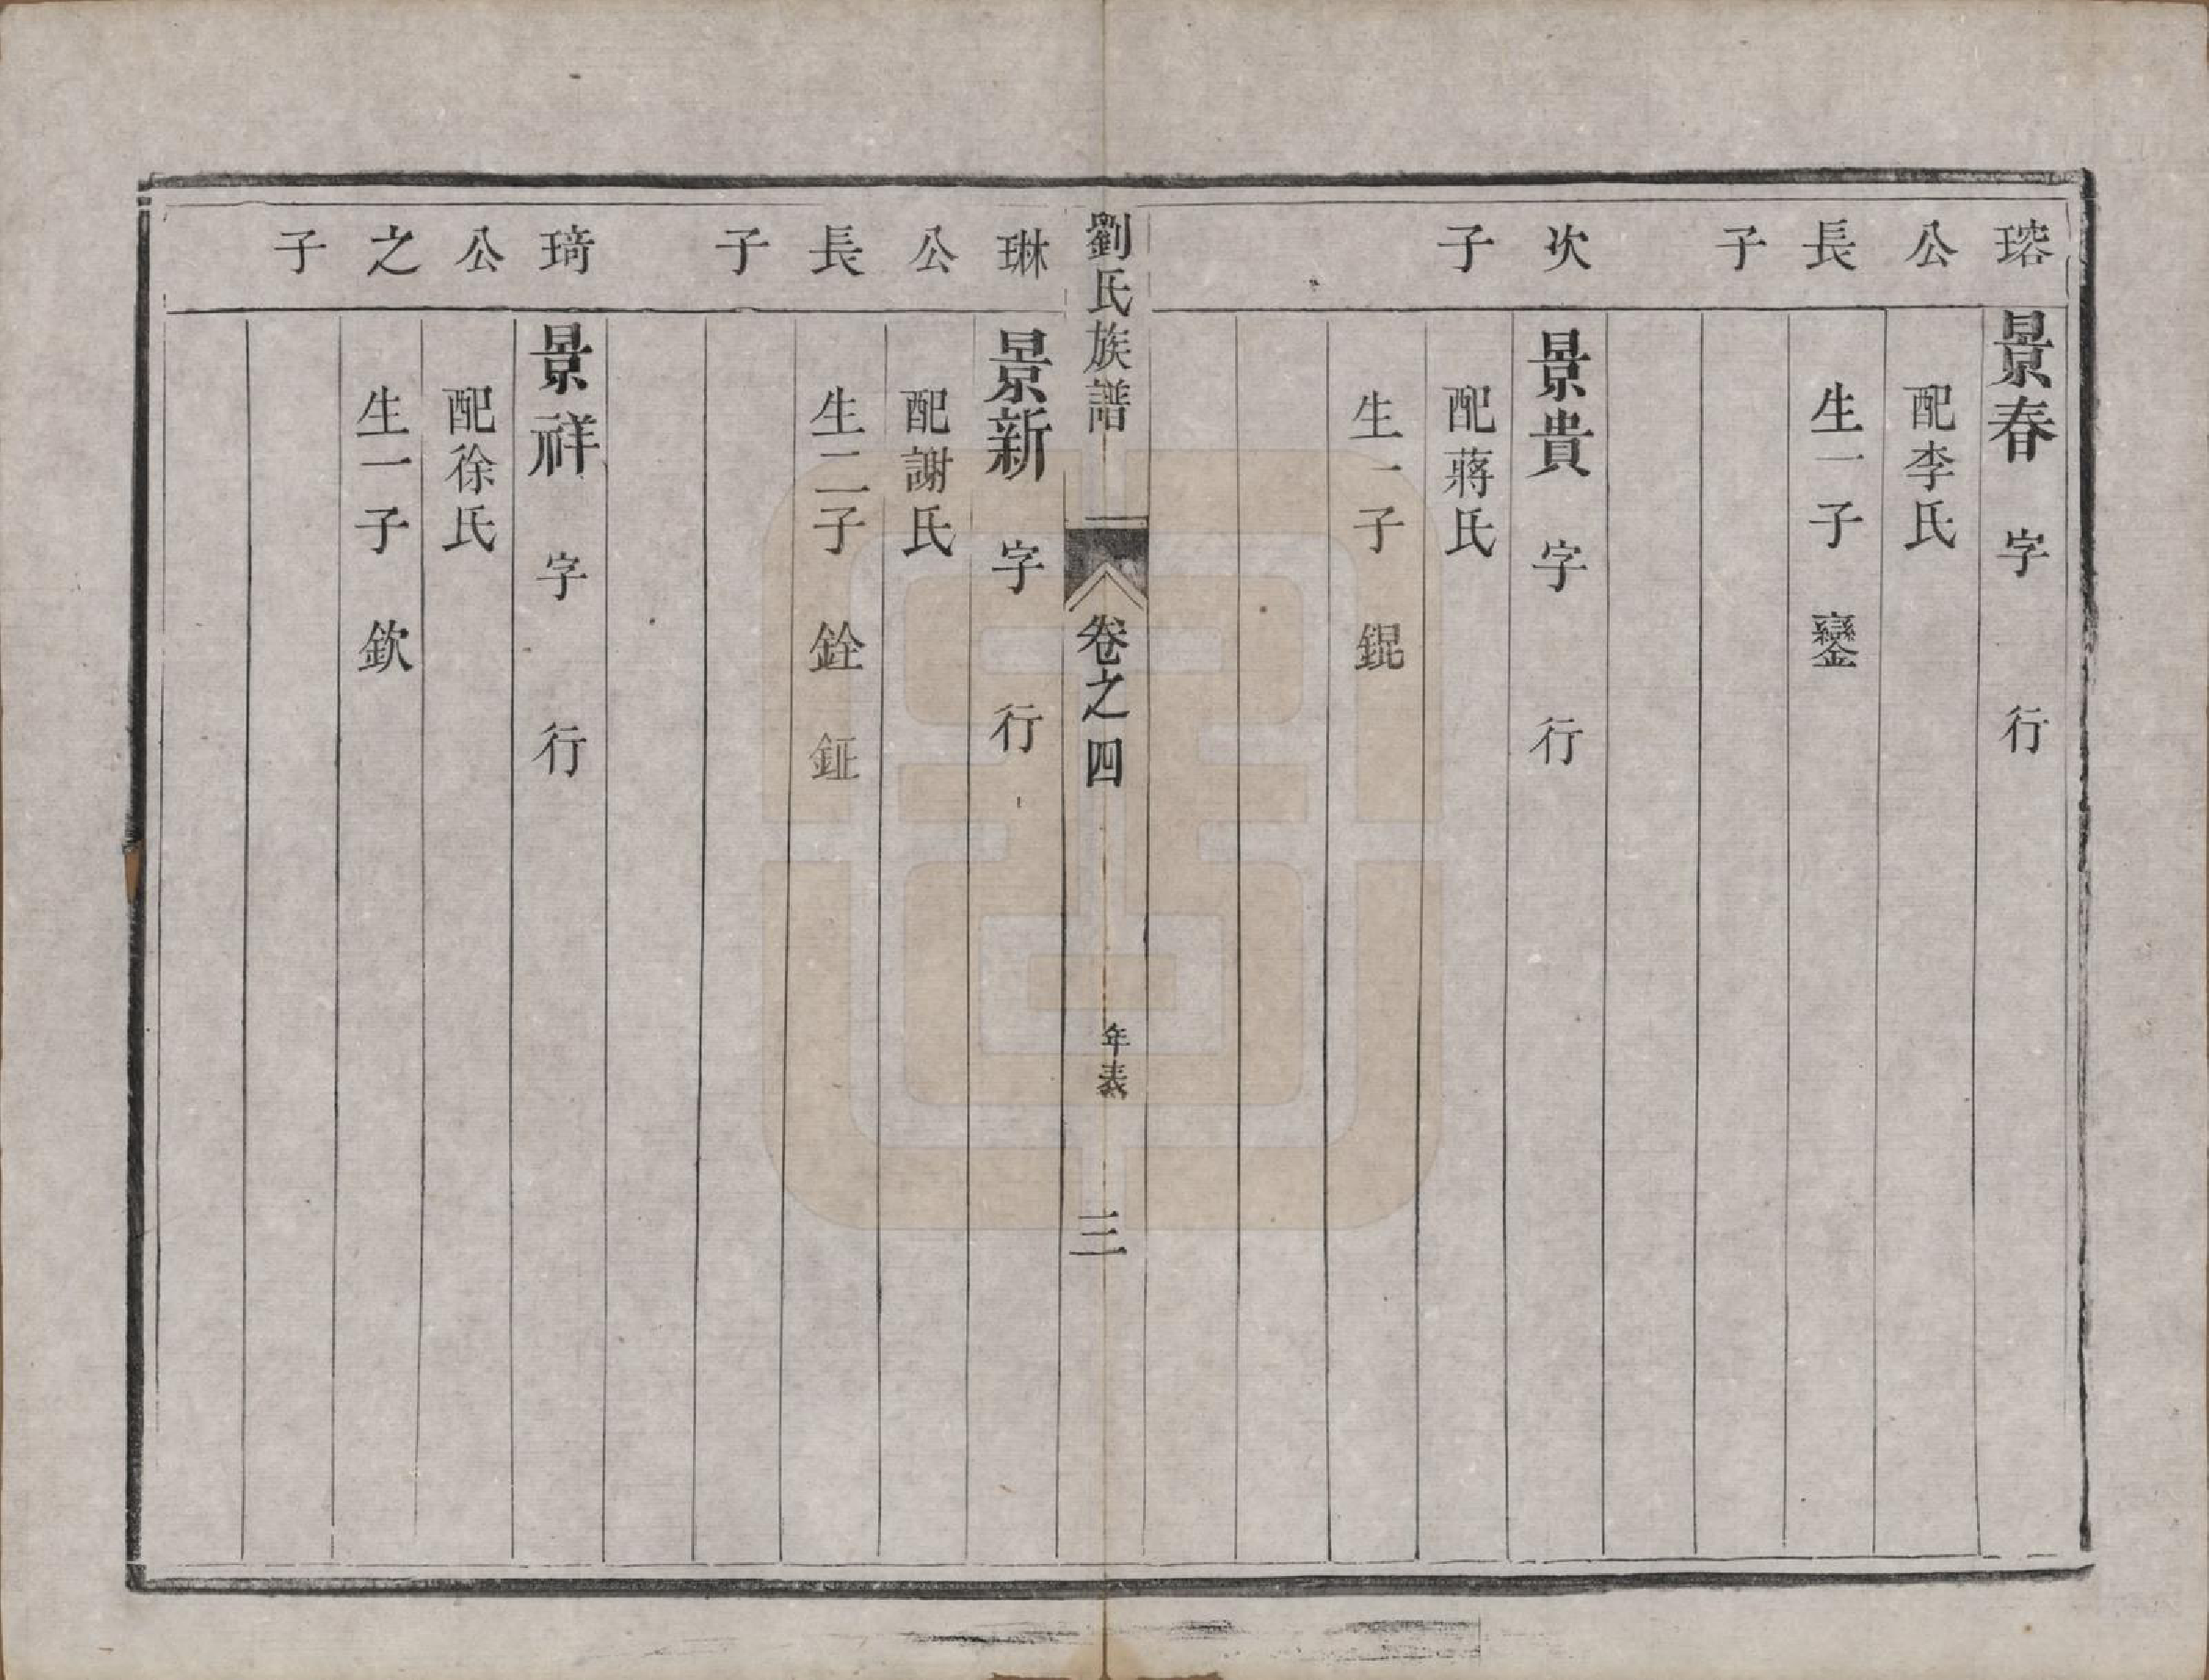 瑢公長子
景春 字 行
配李氏
生一子 鑾
次子
景貴 字 行
配蔣氏
生一子 錕
劉氏族譜 卷之四 年表 三
琳公長子
景新 字 行
配謝氏
生二子 銓 鉦
琦公之子
景祥 字 行
配徐氏
生一子 欽